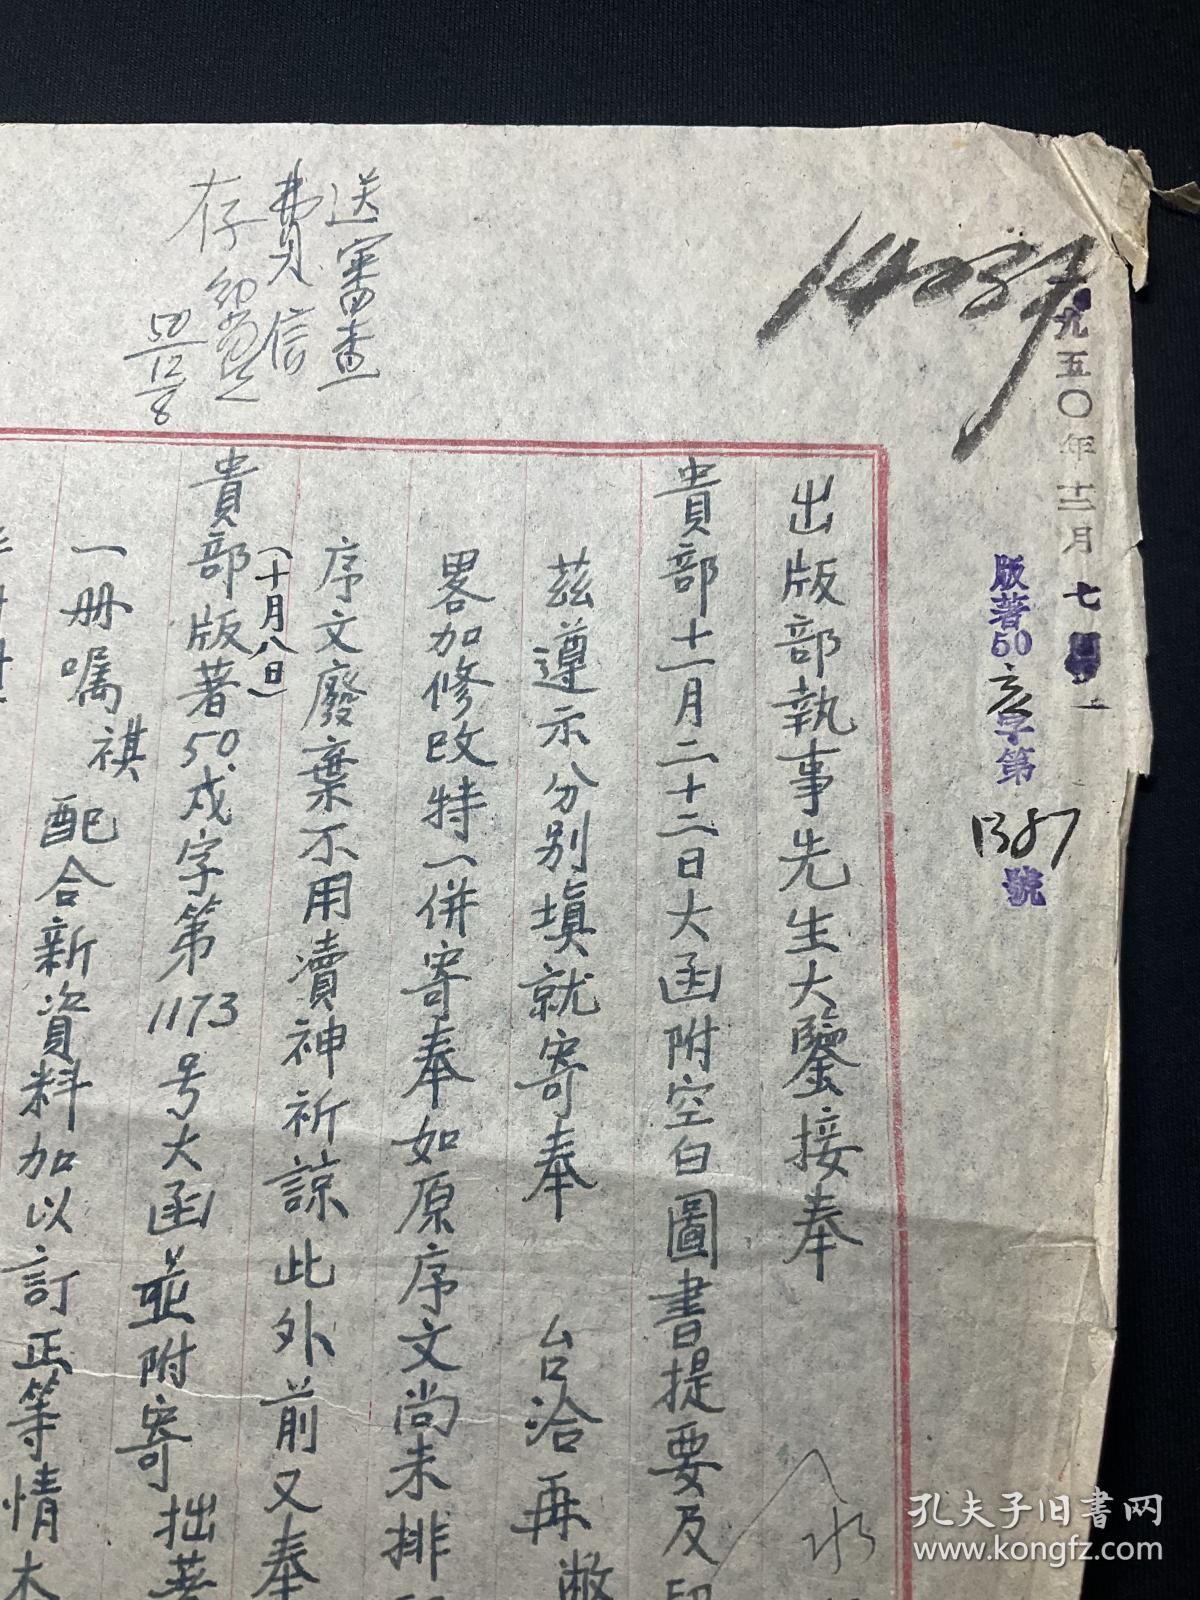 送審查
費信
存
50/12/8
14237
一九五〇年十二月七
版著50亥字第1387號
出版部執事先生大鑒接奉
貴部十一月二十二日大函附空白圖書提要及
茲遵示分別填就寄奉 台洽再敝
畧加修改特一併寄奉如原序文尚未排
序文廢棄不用瀆神祈諒此外前又奉
(十月八日)
貴部版著50.戍字第1173号大函並附寄拙著
一册嘱祺配合新資料加以訂正等情本
孔夫子旧书网
www.kongfz.com